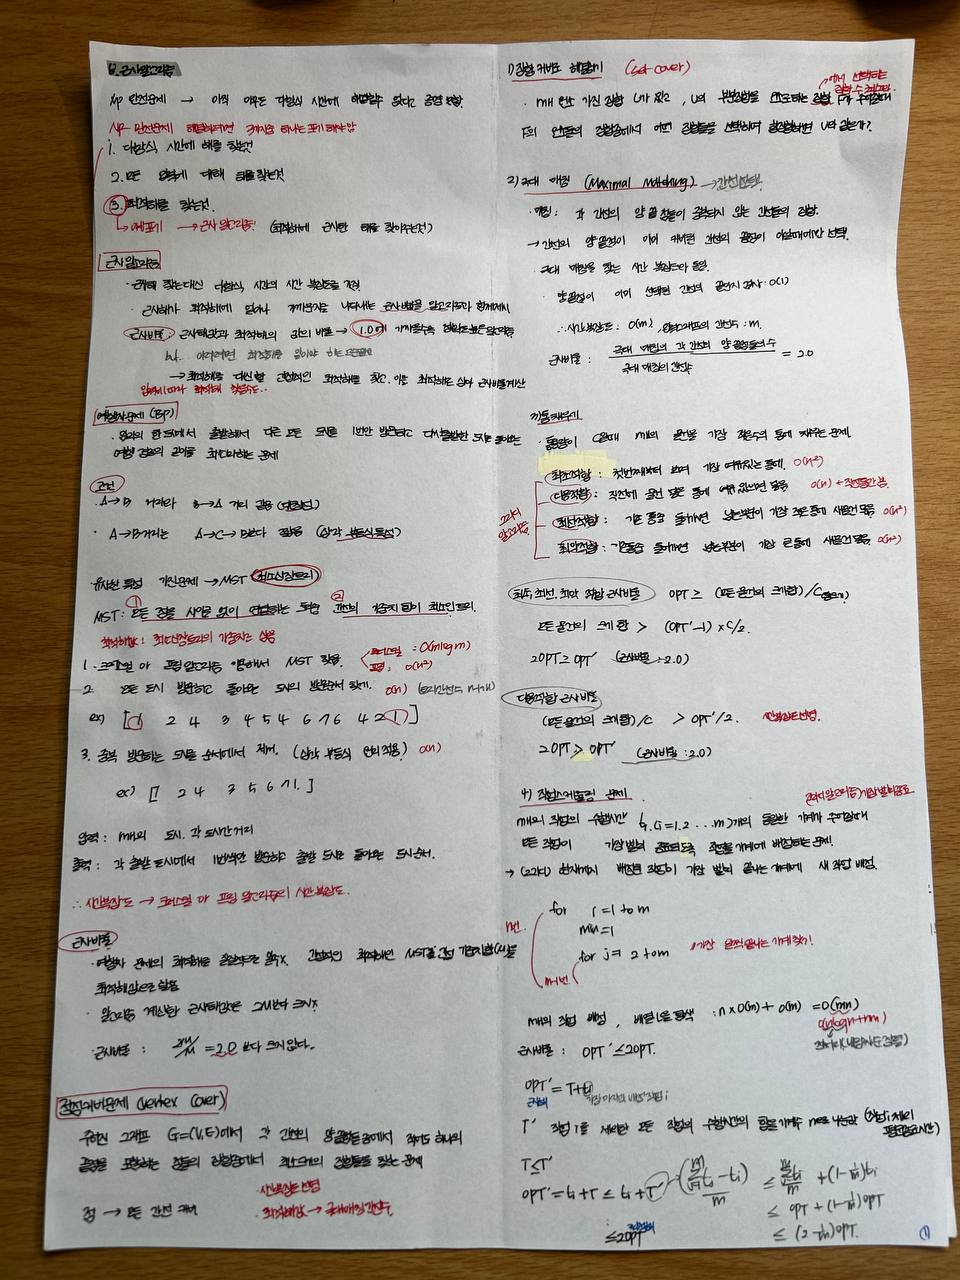 8. 근사알고리즘
NP 완전문제 → 아직 아무도 다항식 시간에 해결할수 없다고 증명 못함.
NP-완전문제 해결하려면 3가지중 하나는 포기해야함
1. 다항식 시간에 해를 찾는것
2. 모든 입력에 대해 해를 찾는것
3. 최적해를 찾는것.
→ 근사 알고리즘. (최적해에 근사한 해를 찾아주는것)
근사알고리즘
· 근사해 찾는대신 다항식 시간의 시간 복잡도를 가짐
· 근사해가 최적해에 얼마나 가까운지를 나타내는 근사비율을 알고리즘과 함께제시.
근사비율: 근사해값과 최적해의 값의 비율 → 1.0에 가까울수록 정확도 높은 알고리즘
→ 최적해를 대신할 간접적인 최적해를 찾고, 이를 최적해로 삼아 근사비율계산
여행자문제 (TSP)
· 임의의 한 도시에서 출발해서 다른 모든 도시를 1번만 방문하고 다시 출발한 도시로 돌아오는
여행 경로의 길이를 최소화하는 문제
조건
· A→B 거리와 B→A 거리 같음 (대칭성)
· A→B거리는 A→C→B보다 짧음 (삼각 부등식 특성)
유사한 특성 가진문제 → MST (최소신장트리)
MST: 모든 점을 사이클 없이 연결하는 트리중 간선의 가중치 합이 최소인트리.
최적해값: 최소신장트리의 가중치로 활용
1. 크러스컬 or 프림 알고리즘 이용해서 MST 찾음. 크러스컬 : O(mlogm) 프림: O(n²)
2. 모든 도시 방문하고 돌아오는 도시의 방문순서 찾기. O(n) (트리간선수 n-1개)
ex) [1 2 4 3 4 5 4 6 7 6 4 2 1]
3. 중복 방문하는 도시를 순서에서 제거. (삼각 부등식 원리 적용) O(n)
ex) [1 2 4 3 5 6 7 1.]
입력: n개의 도시. 각 도시간 거리
출력: 각 출발 도시에서 1번씩만 방문하고 출발 도시로 돌아오는 도시순서.
∴ 시간복잡도 → 크러스컬 or 프림 알고리즘의 시간복잡도.
근사비율
최적해값으로 활용
· 알고리즘 계산한 근사해값은 2M보다 크지 X
· 근사비율 : 2M/M = 2.0 보다 크지않다.
정점커버문제 (Vertex Cover)
주어진 그래프 G=(V,E)에서 각 간선의 양끝점들중에서 적어도 하나의
끝점을 포함하는 점들의 집합중에서 최소크기의 집합을 찾는 문제
점 → 모든 간선 커버
최적해값 → 극대매칭간선수.
1) 집합 커버로 해결하기 (set cover)
F의 원소들의 집합중에서 어떤 집합들을 선택하여 합집합하면 U와 같은가?
2) 극대 매칭 (Maximal Matching) → 간선선택
· 매칭 : 각 간선의 양 끝점들이 중복되지 않는 간선들의 집합.
→ 간선의 양 끝점이 이미 커버된 간선의 끝점이 아닐때에만 선택.
· 극대 매칭을 찾는 시간 복잡도와 동일.
· 양 끝점이 이미 선택된 간선의 끝인지 검사 : O(1)
∴ 시간복잡도: O(m), 입력그래프의 간선수 : m.
근사비율 : 극대 매칭의 각 간선의 양 끝점들의 수 / 극대 매칭의 간선수 = 2.0
통채우기
· 통용량이 C일때 n개의 물건을 가장 적은수의 통에 채우는 문제.
최초적합 : 첫번째부터 보며 가장 여유있는 통에. O(n²)
다음적합 : 직전에 물건 넣은 통에 여유 있으면 넣음
최선적합 : 기존 통중 들어가면 남는부분이 가장 작은 통에 새물건 넣음. O(n²)
최악적합 : 기존통중 들어가면 남는부분이 가장 큰 통에 새물건 넣음. O(n²)
그리디 알고리즘
최초, 최선, 최악 적합 근사비율 OPT ≥ (모든 물건의 크기합) / C
모든물건의 크기 합 > (OPT'-1) × C/2.
2OPT ≥ OPT' (근사비율 : 2.0)
다음적합 근사비율
(모든물건의 크기합)/C > OPT'/2.
2OPT > OPT' (근사비율 : 2.0)
4) 작업스케줄링 문제
모든 작업이 가장 빨리 종료되도록 작업을 기계에 배정하는 문제.
→ (그리디) 현재까지 배정된 작업이 가장 빨리 끝나는 기계에게 새 작업 배정.
for i = 1 to n
min = 1
for j = 2 to m //가장 일찍 끝나는 기계 찾기!
n번
m-1번
n개의 작업 배정, 배열 L을 탐색 : n × O(m) + O(m) = O(mn)
O(nlogn+nm)
근사비율 : OPT' ≤ 2OPT.
OPT' = T + ti
근사해 가장 마지막 배정 작업 i
T ≤ T'
OPT' = ti + T ≤ ti + T'
≤ OPT + (1-1/m)OPT
≤ (2-1/m)OPT.
≤ 2OPT
①